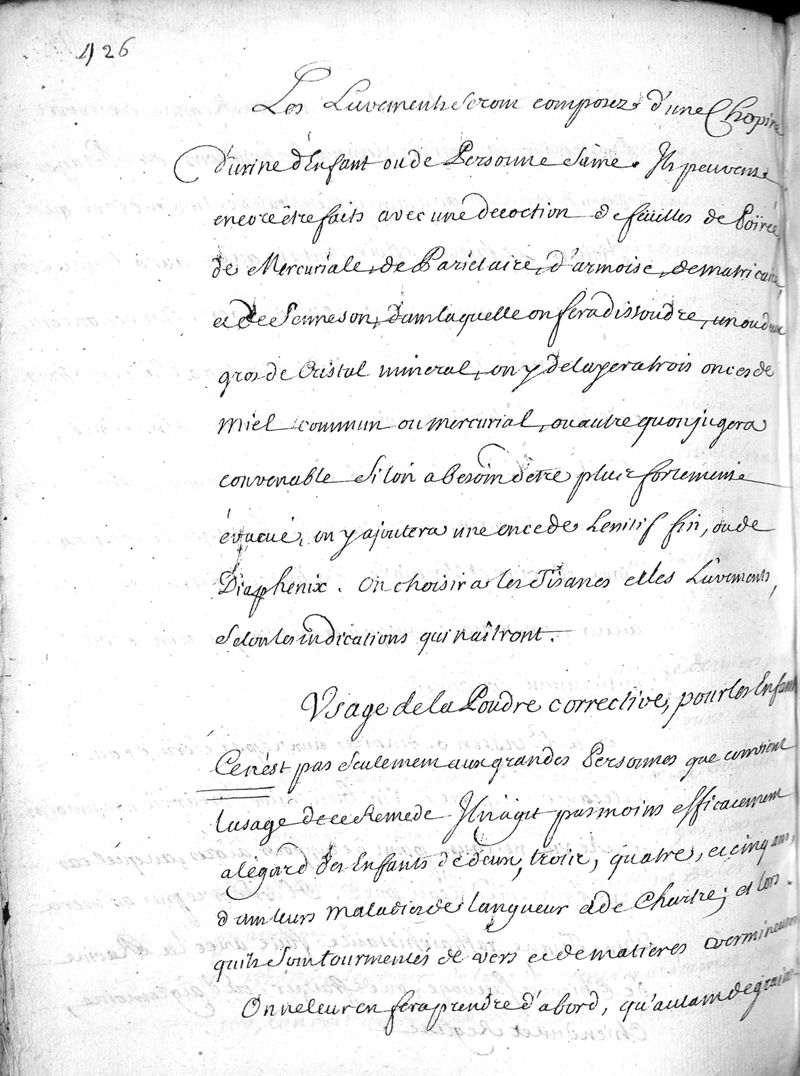 426
Les Lavements seront composez d'une Chopine
d'urine d'Enfant ou de Personne saine. Ils peuvent
encore être faits avec une decoction de feüilles de Poirée,
de Mercuriale, de Parietaire, d'armoise, de matricaire,
et de Senneson, dans laquelle on fera dissoudre, un ou deux
gros de Cristal mineral, on y delayera trois onces de
Miel commun ou mercurial, ou autre qu'on jugera
convenable Si l'on a besoin d'etre plus fortement
évacué, on y ajoutera une once de Lenitif fin, ou de
Diaphenix. On choisira les Tisanes et les Lavements,
selon les indications qui naîtront.
Usage de la Poudre corrective, pour les Enfants
Ce n'est pas seulement aux grandes Personnes que convient
l'usage de ce Remede Il n'agit pas moins efficacement
a légard des Enfants de deux, trois, quatre, et cinq ans,
dans leurs maladies de langueur et de Chartre; et lors
qu'ils sont tourmentés de vers et de matieres vermineuses
On ne leur en fera prendre d'abord, qu'autant de grains